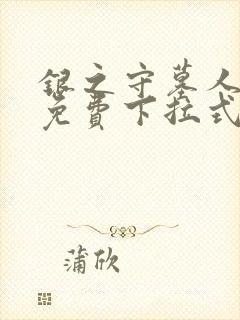 银之守墓人
免費下拉式
蒲欣